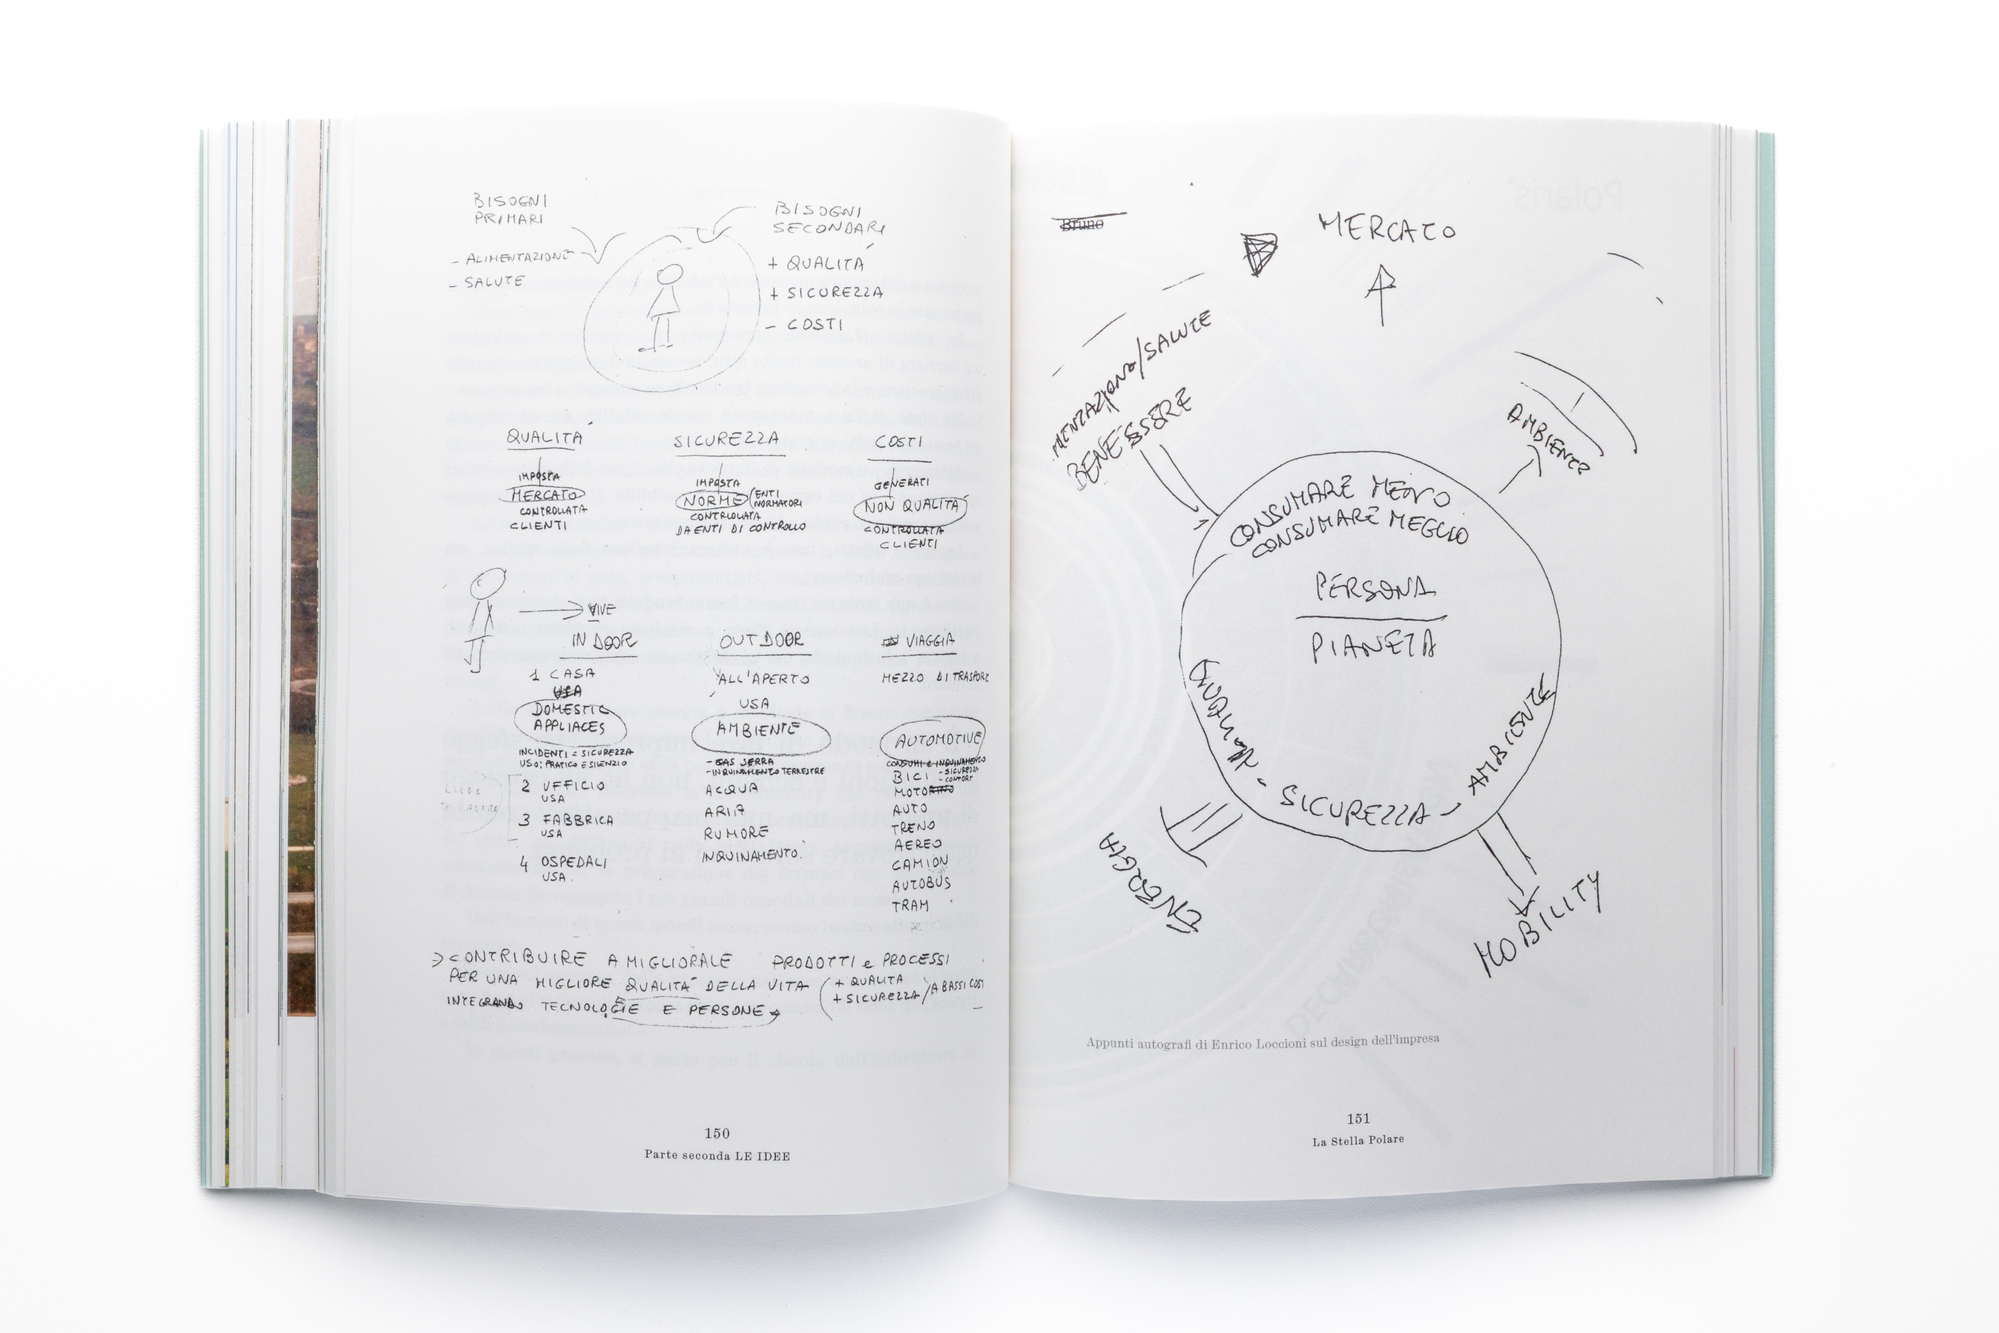 BISOGNI
PRIMARI
- ALIMENTAZIONE
- SALUTE
BISOGNI
SECONDARI
+ QUALITÁ
+ SICUREZZA
- COSTI
QUALITÁ
IMPOSTA
MERCATO
CONTROLLATA
CLIENTI
SICUREZZA
IMPOSTA
NORME (ENTI
NORMATORI
CONTROLLATA
DA ENTI DI CONTROLLO
COSTI
GENERATI
NON QUALITÁ
CONTROLLATA
CLIENTI
VIVE
IN DOOR
1 CASA
USA
DOMESTIC
APPLIACES
INCIDENTI = SICUREZZA
USO: PRATICO E SILENZIO
2 UFFICIO
USA
3 FABBRICA
USA
4 OSPEDALI
USA.
OUTDOOR
ALL'APERTO
USA
AMBIENTE
- GAS SERRA
- INQUINAMENTO TERRESTRE
ACQUA
ARIA
RUMORE
INQUINAMENTO.
VIAGGIA
MEZZO DI TRASPORT
AUTOMOTIVE
CONSUMI E INQUINAMENTO
BICI - SICUREZZA
- CONFORT
MOTO
AUTO
TRENO
AEREO
CAMION
AUTOBUS
TRAM
> CONTRIBUIRE A MIGLIORALE PRODOTTI e PROCESSI
PER UNA MIGLIORE QUALITÁ DELLA VITA (+ QUALITA
+ SICUREZZA / A BASSI COSTI
INTEGRANDO TECNOLOGIE E PERSONE
150
Parte seconda LE IDEE
Bruno
MERCATO
MENTAZIONE/SALUTE
BENESSERE
AMBIENTE
CONSUMARE MENO
CONSUMARE MEGLIO
PERSONA
PIANETA
- SICUREZZA - AMBIENTE
ENERGIA
MOBILITY
Appunti autografi di Enrico Loccioni sul design dell'impresa
151
La Stella Polare